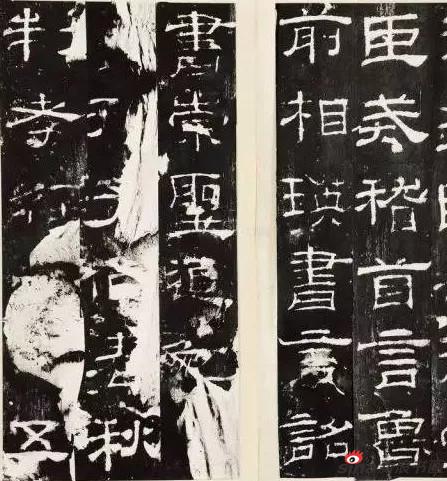 臣戒稽首言魯
前相瑛書言詔
書崇聖道
孔子作春秋
制孝經五